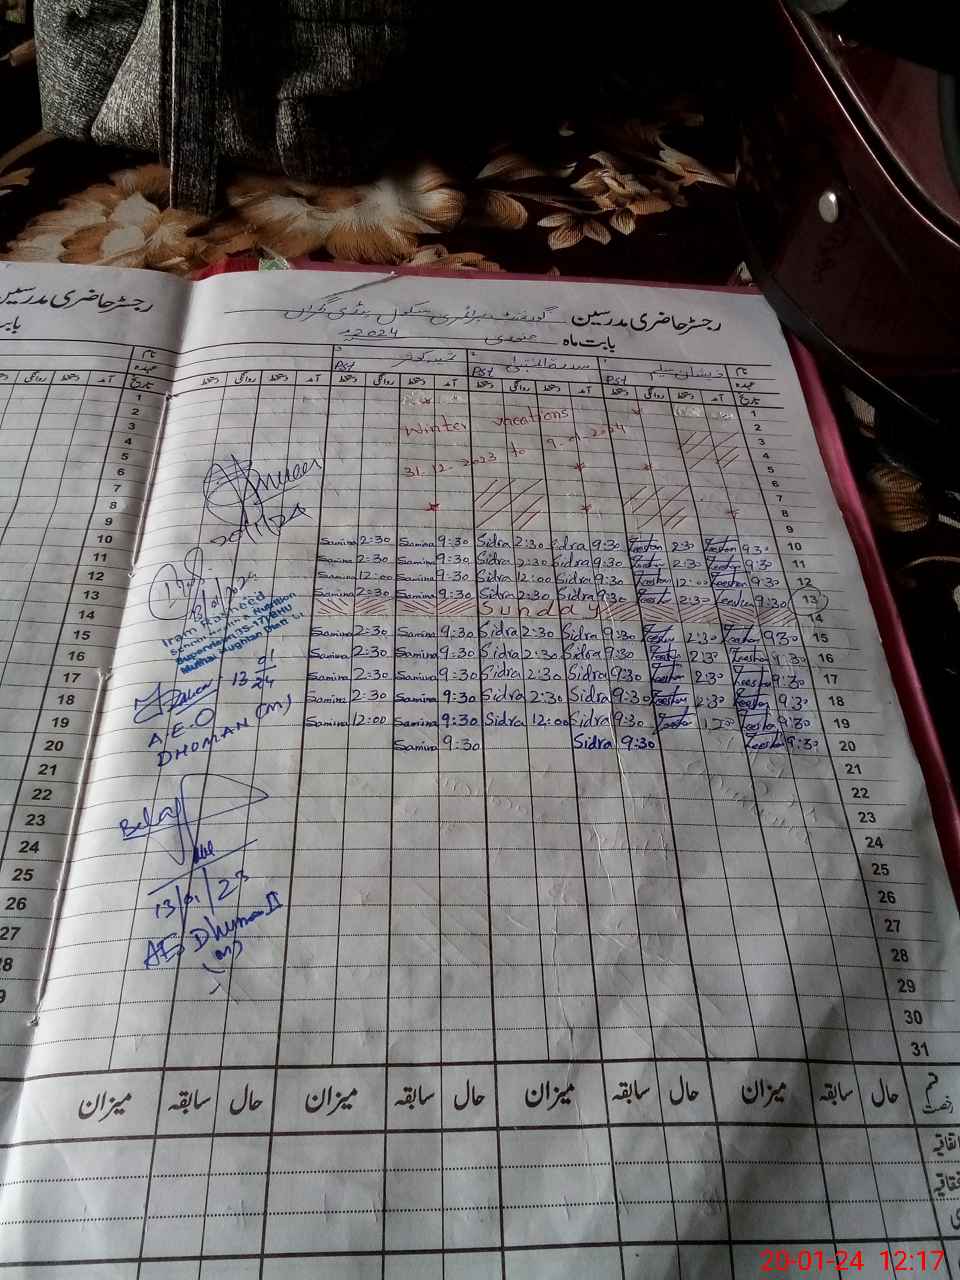 رجسٹر حاضری مدرسین گورنمنٹ پرائمری سکول
بابت ماہ جنوری 2024ء
نام
عہدہ PST PST PST
تاریخ آمد دستخط روانگی دستخط آمد دستخط روانگی دستخط آمد دستخط روانگی دستخط آمد دستخط روانگی دستخط
1
2
3
4
5
6
7
8
9
Winter vacations
31-12-2023 to 9-01-2024
Samina 2:30 Samina 9:30 Sidra 2:30 Sidra 9:30 Zeeshan 2:30 Zeeshan 9:30 10
Samina 2:30 Samina 9:30 Sidra 2:30 Sidra 9:30 Zeeshan 2:30 Zeeshan 9:30 11
Samina 12:00 Samina 9:30 Sidra 12:00 Sidra 9:30 Zeeshan 12:00 Zeeshan 9:30 12
Samina 2:30 Samina 9:30 Sidra 2:30 Sidra 9:30 Zeeshan 2:30 Zeeshan 9:30 13
Sunday 14
Samina 2:30 Samina 9:30 Sidra 2:30 Sidra 9:30 Zeeshan 2:30 Zeeshan 9:30 15
Samina 2:30 Samina 9:30 Sidra 2:30 Sidra 9:30 Zeeshan 2:30 Zeeshan 9:30 16
Samina 2:30 Samina 9:30 Sidra 2:30 Sidra 9:30 Zeeshan 2:30 Zeeshan 9:30 17
Samina 2:30 Samina 9:30 Sidra 2:30 Sidra 9:30 Zeeshan 2:30 Zeeshan 9:30 18
Samina 12:00 Samina 9:30 Sidra 12:00 Sidra 9:30 Zeeshan Zeeshan 9:30 19
Samina 9:30 Sidra 9:30 Zeeshan 9:30 20
21
22
23
24
25
26
27
28
29
30
31
Iram Rasheed
A.E.O
DHOMAN (M)
13/01/23
AEO Dhuman II
(M)
حال سابقہ میزان حال سابقہ میزان حال سابقہ میزان حال سابقہ میزان
رجسٹر حاضری مدرسین
نام
عہدہ
تاریخ
1
2
3
4
5
6
7
8
9
10
11
12
13
14
15
16
17
18
19
20
21
22
23
24
25
26
27
28
20-01-24 12:17